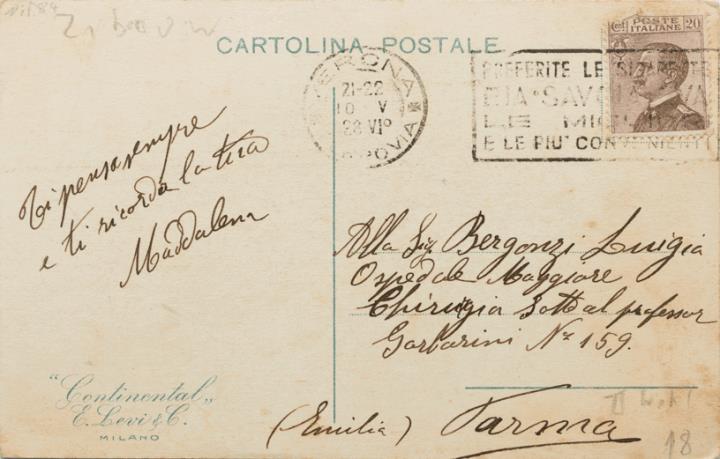 CARTOLINA POSTALE
POSTE
ITALIANE
20
VERONA
21-22
10 V
28 VIº
FERROVIA
PREFERITE LE SIGARETTE
EJA SAVOIA
LE MIGLIORI
E LE PIU' CONVENIENTI
Ti penso sempre
e ti ricorda la tua
Maddalena
Alla Sig Bergonzi Luigia
Ospedale Maggiore
Chirugia Sott al professor
Garbarini Nº 159.
(Emilia) Parma
"Continental„
E. Levi & C.
MILANO
18